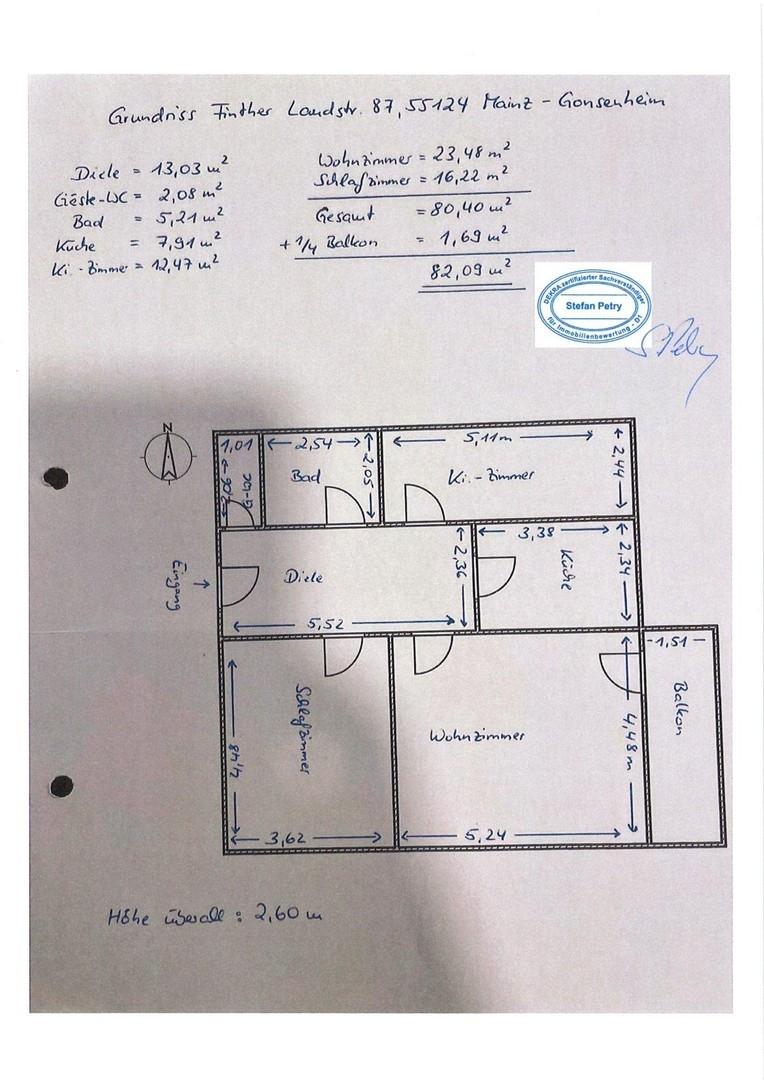 Grundriss Finther Landstr. 87, 55124 Mainz - Gonsenheim
Diele = 13,03 m²
Gäste-WC = 2,08 m²
Bad = 5,21 m²
Küche = 7,91 m²
Ki.-Zimmer = 12,47 m²
Wohnzimmer = 23,48 m²
Schlafzimmer = 16,22 m²
Gesamt = 80,40 m²
+ 1/4 Balkon = 1,69 m²
82,09 m²
DEKRA zertifizierter Sachverständiger
Stefan Petry
für Immobilienbewertung - D1
S. Petry
N
1,01
2,54
5,11m
2,05
2,44
G-WC
Bad
Ki.-Zimmer
3,38
2,36
2,34
Küche
Eingang
Diele
5,52
1,51
Schlafzimmer
Balkon
Wohnzimmer
4,48
4,48 m
3,62
5,24
Höhe überall : 2,60 m